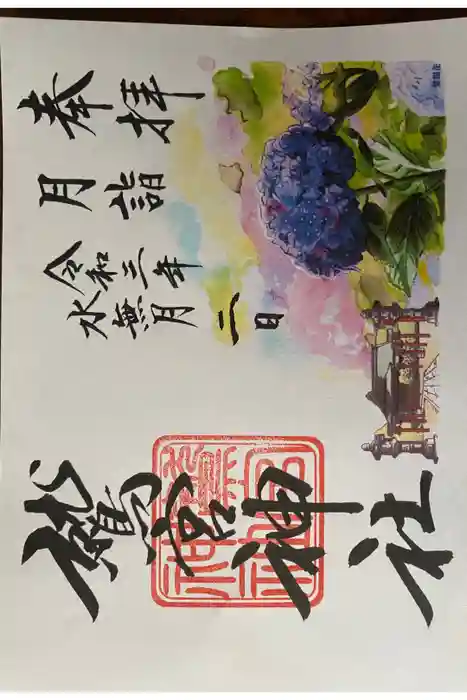 奉拝
月詣
令和三年
水無月二日
鷲宮神社